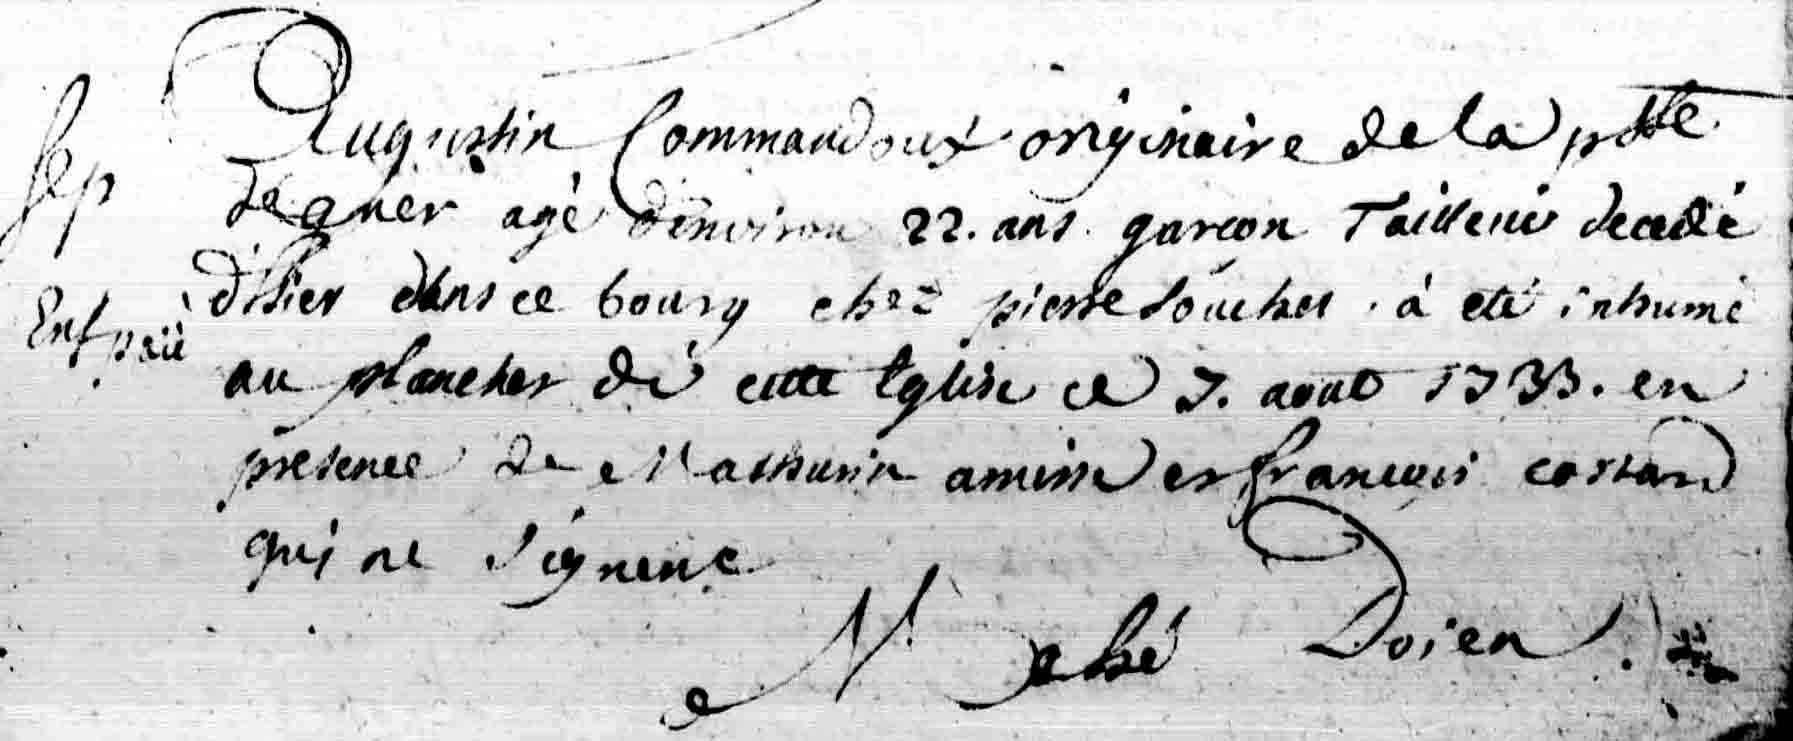 Sep Augustin Commandoux originaire de la psse
de guer agé d'environ 22. ans. garçon Tailleur decedé
d'hier dans ce bourg chez pierre Soucher. à eté inhumé
Enf paié
au plancher dé cette Eglise ce 7. aout 1733. en
presence de Mathurin amisse et françois costard
qui ne signent
M Doien.